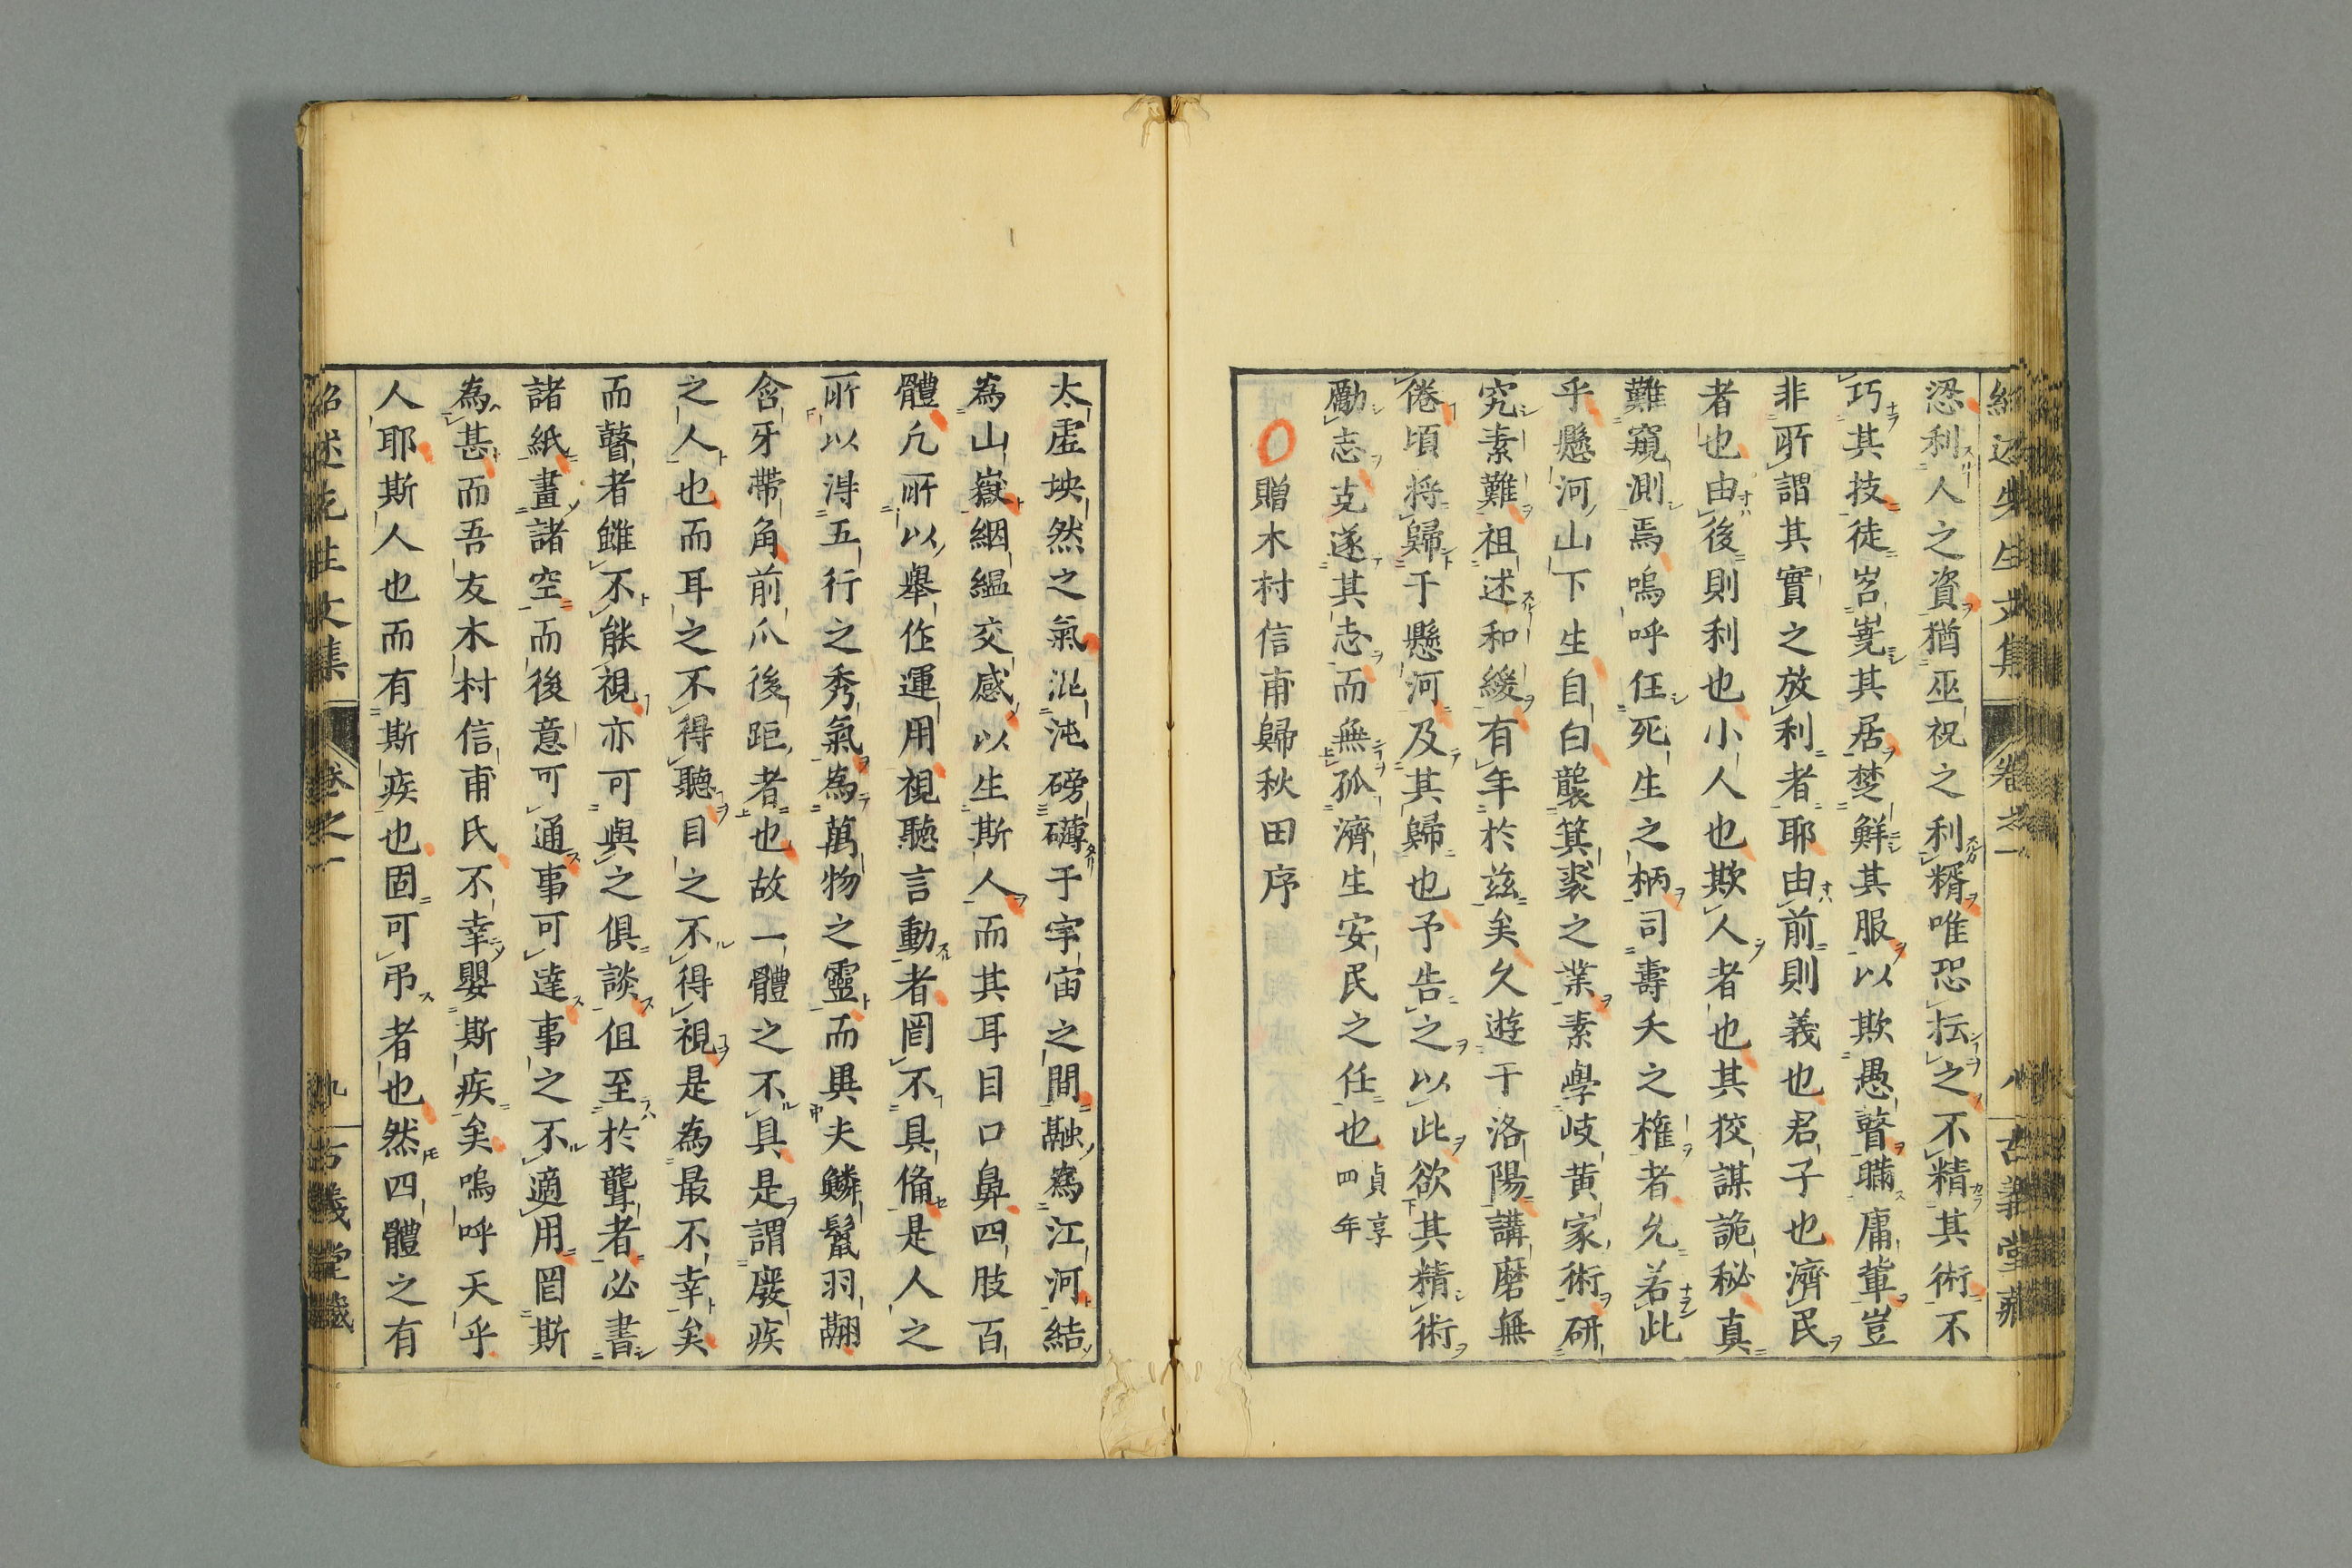 紹述先生文集 卷之一 八 古義堂藏
恐利人之資猶巫祝之利糈唯恐抎之不精其術不
巧其技徒岧嶤其居楚鮮其服以欺愚瞽瞞庸軰豈
非所謂其實之放利者耶由前則義也君子也濟民
者也由後則利也小人也欺人者也其狡謀詭秘真
難窺測焉嗚呼任死生之柄司壽夭之權者允若此
乎懸河山下生自白襲箕裘之業素學岐黄家術研
究素難祖述和緩有年於兹矣久遊于洛陽講磨無
倦頃将歸于懸河及其歸也予告之以此欲其精術
勵志克遂其志而無孤濟生安民之任也貞享四年
贈木村信甫歸秋田序
太虚坱然之氣混沌磅礴于宇宙之間融為江河結
為山嶽絪緼交感以生斯人而其耳目口鼻四肢百
體凢所以舉作運用視聽言動者罔不具俻是人之
所以淂五行之秀氣為萬物之靈而異夫鱗鬣羽翮
含牙帶角前爪後距者也故一體之不具是謂廢疾
之人也而耳之不得聽目之不得視是為最不幸矣
而瞽者雖不能視亦可與之俱談但至於聾者必書
諸紙畫諸空而後意可通事可達事之不適用罔斯
為甚而吾友木村信甫氏不幸嬰斯疾矣嗚呼天乎
人耶斯人也而有斯疾也固可吊者也然四體之有
紹述先生文集 卷之一 九 古義堂藏